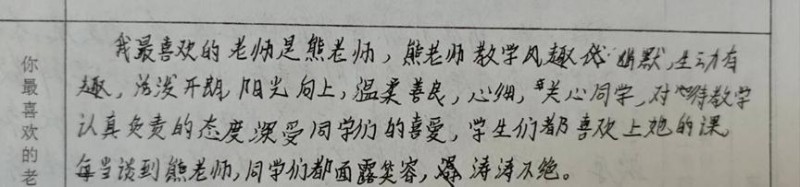 我最喜欢的老师是熊老师，熊老师教学风趣 幽默，生动有
趣，活泼开朗，阳光向上，温柔善良，心细，关心同学，对待教学
认真负责的态度深受同学们的喜爱，学生们都喜欢上她的课，
每当谈到熊老师，同学们都面露笑容，滔滔不绝。
你最喜欢的老